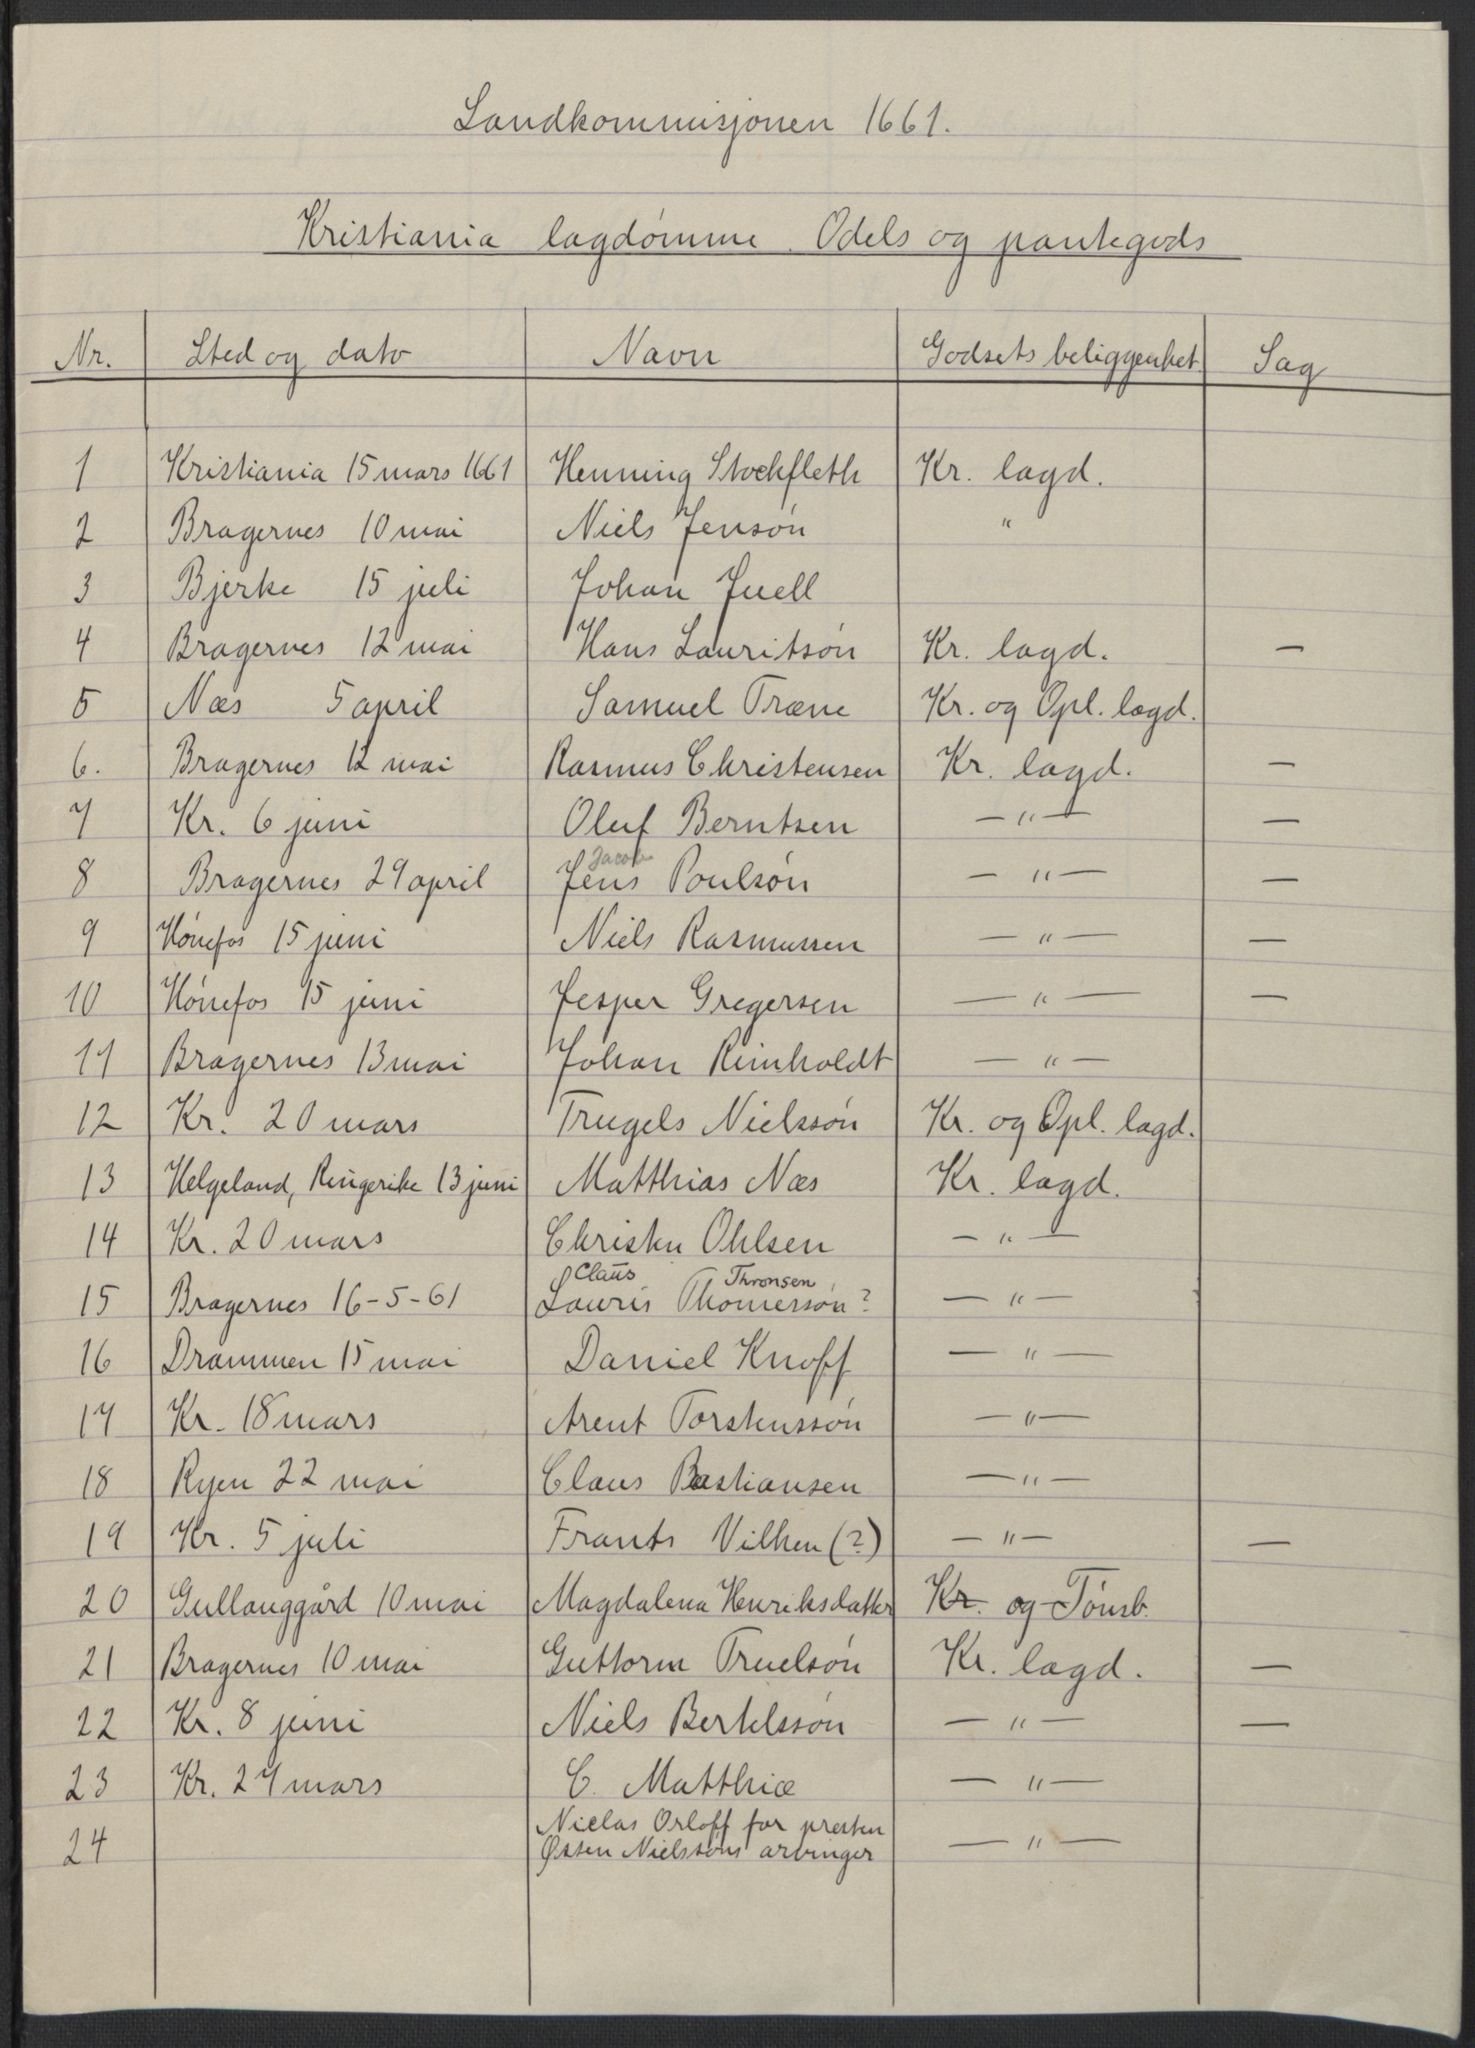 Landkommisjonen 1661.
Kristiania lagdømme. Odels og pantegods
Nr. Sted og dato Navn Godsets beliggenhet Sag
1 Kristiania 15 mars 1661 Henning Stockfleth Kr. lagd.
2 Bragernes 10 mai Niels Jensøn "
3 Bjerke 15 juli Johan Juell
4 Bragernes 12 mai Hans Lauritsøn Kr. lagd. —
5 Næs 5 april Samuel Træne Kr. og Opl. lagd.
6. Bragernes 12 mai Rasmus Christensen Kr. lagd. —
7 Kr. 6 juni Oluf Berntsen — " — —
Jacob
8 Bragernes 29 april Jens Poulsøn — " — —
9 Hønefos 15 juni Niels Rasmussen — " — —
10 Hønefos 15 juni Jesper Gregersen — " — —
11 Bragernes 13 mai Johan Reinholdt — " —
12 Kr. 20 mars Trugels Nielssøn Kr. og Opl. lagd.
13 Helgeland, Ringerike 13 juni Matthias Næs Kr. lagd.
14 Kr. 20 mars Christen Ohlsen — " —
Claus Thronsen
15 Bragernes 16-5-61 Lauris Thomersøn? — " —
16 Drammen 15 mai Daniel Knoff — " —
17 Kr. 18 mars Arent Torstenssøn — " —
18 Ryen 22 mai Claus Bastiansen — " —
19 Kr. 5 juli Frants Vilken (?) — " — —
20 Gullauggård 10 mai Magdalena Henriksdatter Kr. og Tønsb.
21 Bragernes 10 mai Guttorm Truelsøn Kr. lagd. —
22 Kr. 8 juni Niels Bertelssøn — " — —
23 Kr. 27 mars C. Matthiæ — " —
Niclas Orloff for presten
24 Øssen Nielssøns arvinger — " —